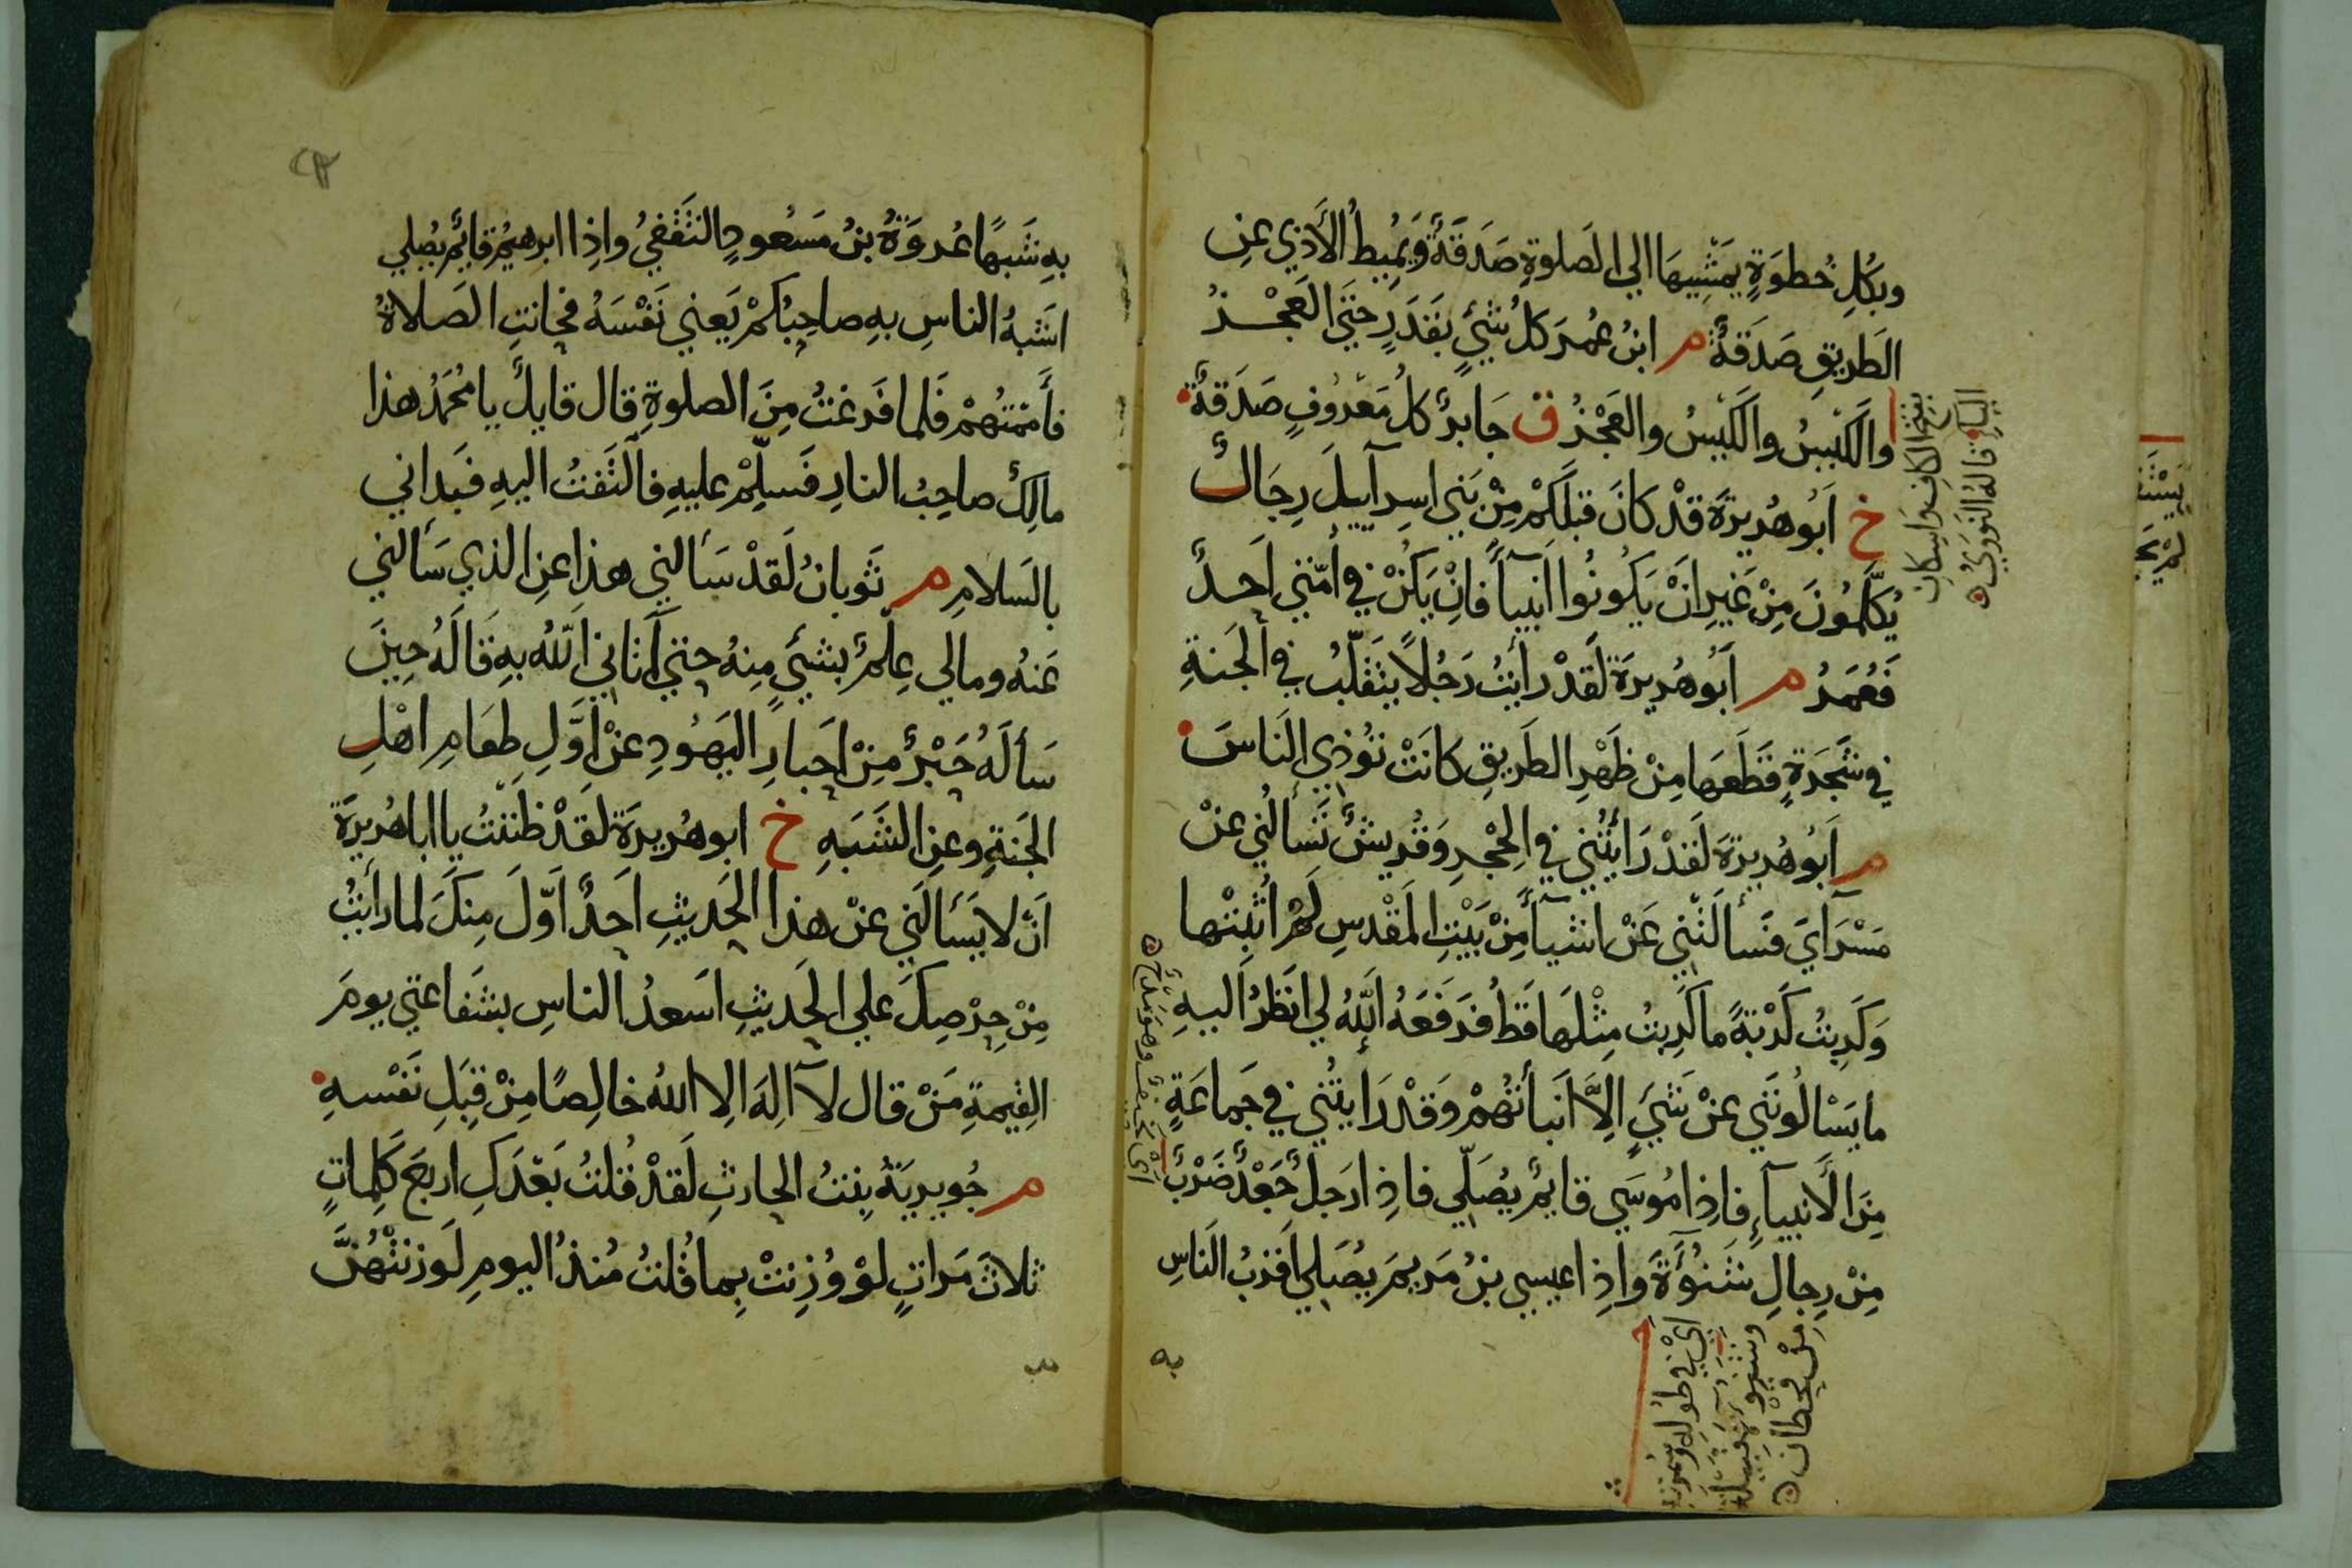 وبكل خُطوَةٍ يَمْشِيهَا الي الصَلوةِ صَدَقَةٌ وَيُمِيطُ الأَذي عنِ
الطَريقِ صَدَقَةٌ م ابنُ عُمَرَ كلُ شَيءٍ بقَدَرٍ حَتي العَجْزُ
والكَيْسُ والكَيْسُ والعَجْزُ ق جَابرٌ كلُ مَعْرُوفٍ صَدَقَةٌ
خ اَبُو هُرَيرَةَ قَدْ كانَ قبلَكُمْ مِنْ بَني اسِرآييلَ رِجَالٌ
يُكَلَّمُونَ مِنْ غَيرِ انْ يَكُونُوا اَنبيآً فانْ يَكُنْ في اُمّتي اَحدٌ
فَعُمَرُ م اَبُو هُرَيرَةَ لَقدْ رأيْتُ رَجُلاً يتَقَلّبُ في الجَنةِ
في شَجَرَةٍ قَطَعَها مِنْ ظَهْرِ الطَريقِ كانَتْ تؤذي الناسَ
م اَبُو هُرَيرَةَ لَقَدْ رَأيتُني في الحِجْرِ وَقُريشٌ تَسألُني عنْ
مَسْرَايَ فسَألَتْني عَنْ اشيآً مِنْ بَيْتِ المَقْدسِ لمْ اُثبِتْها
وَكَرِبتُ كَرْبَةً ما كَرِبتُ مِثْلَهَا قَطُ فرَفَعَهُ اللهُ لي انظُرُ اليهِ
ما يَسْألُونَني عنْ شَيءٍ اِلاَّ اَنبأتُهُمْ وَقَدْ رَايتُني في جَماعَةٍ
مِنَ الأنبيآءِ فاِذا مُوسَي قايمٌ يُصَلّي فاذا رَجلٌ جَعْدٌ ضَرْبٌ
مِنْ رِجالِ شَنُوءَةَ واذا عيسي بنُ مَريمَ يُصَلي اَقرَبُ الناسِ
بفتح الكاف واسكان
اليا قاله النووي
اي في طوله وسمرته
وشنوءة قبيلة
من قحطان
به
به شَبهًا عُروَةُ بنُ مَسْعُودٍ الثَقَفيُ واِذا ابرهيمُ قايمٌ يُصلي
اشَبهُ الناسِ بهِ صاحِبُكمْ يَعني نَفْسَهُ فحانتِ الصَلاةُ
فأمَمْتُهُمْ فَلما فَرغتُ مِنَ الصلوةِ قال قايلٌ يا محُمَدُ هذا
مالِكٌ صاحِبُ النارِ فسَلِّمْ عليهِ فالتَفتُ اليهِ فبَداني
بالسَلامِ م ثَوبانُ لَقدْ سَألني هذا عنِ الذي سَألني
عَنهُ ومالي عِلمٌ بشيءٍ مِنهُ حتي اَتاني اللهُ بهِ قَالَهُ حِينَ
سَألَهُ حَبْرٌ مِنْ احبارِ اليَهُودِ عنْ اوَّلِ طعَامِ اهْلِ
الجَنةِ وعنِ الشَبَهِ خ ابو هُرَيرَةَ لقَدْ ظنَنتُ يا ابا هُرَيرَةَ
اَنْ لا يَسَألَني عنْ هذا الحَديثِ اَحَدٌ اَوّلَ مِنكَ لما رأيتُ
مِنْ حِرْصِكَ علي الحَديثِ اسَعدُ الناسِ بشَفاعتي يومَ
القِيمةِ مَنْ قال لا الِهَ الِا اللهُ خالِصًا مِنْ قِبَلِ نَفْسهِ
م جُويريَةُ بِنتُ الحارثِ لَقدْ قُلتُ بَعْدَكِ اربَعَ كَلِماتٍ
ثلاثَ مَراتٍ لوْ وُزِنتْ بِما قُلتُ مُنذُ اليومِ لَوزنتْهُنَّ